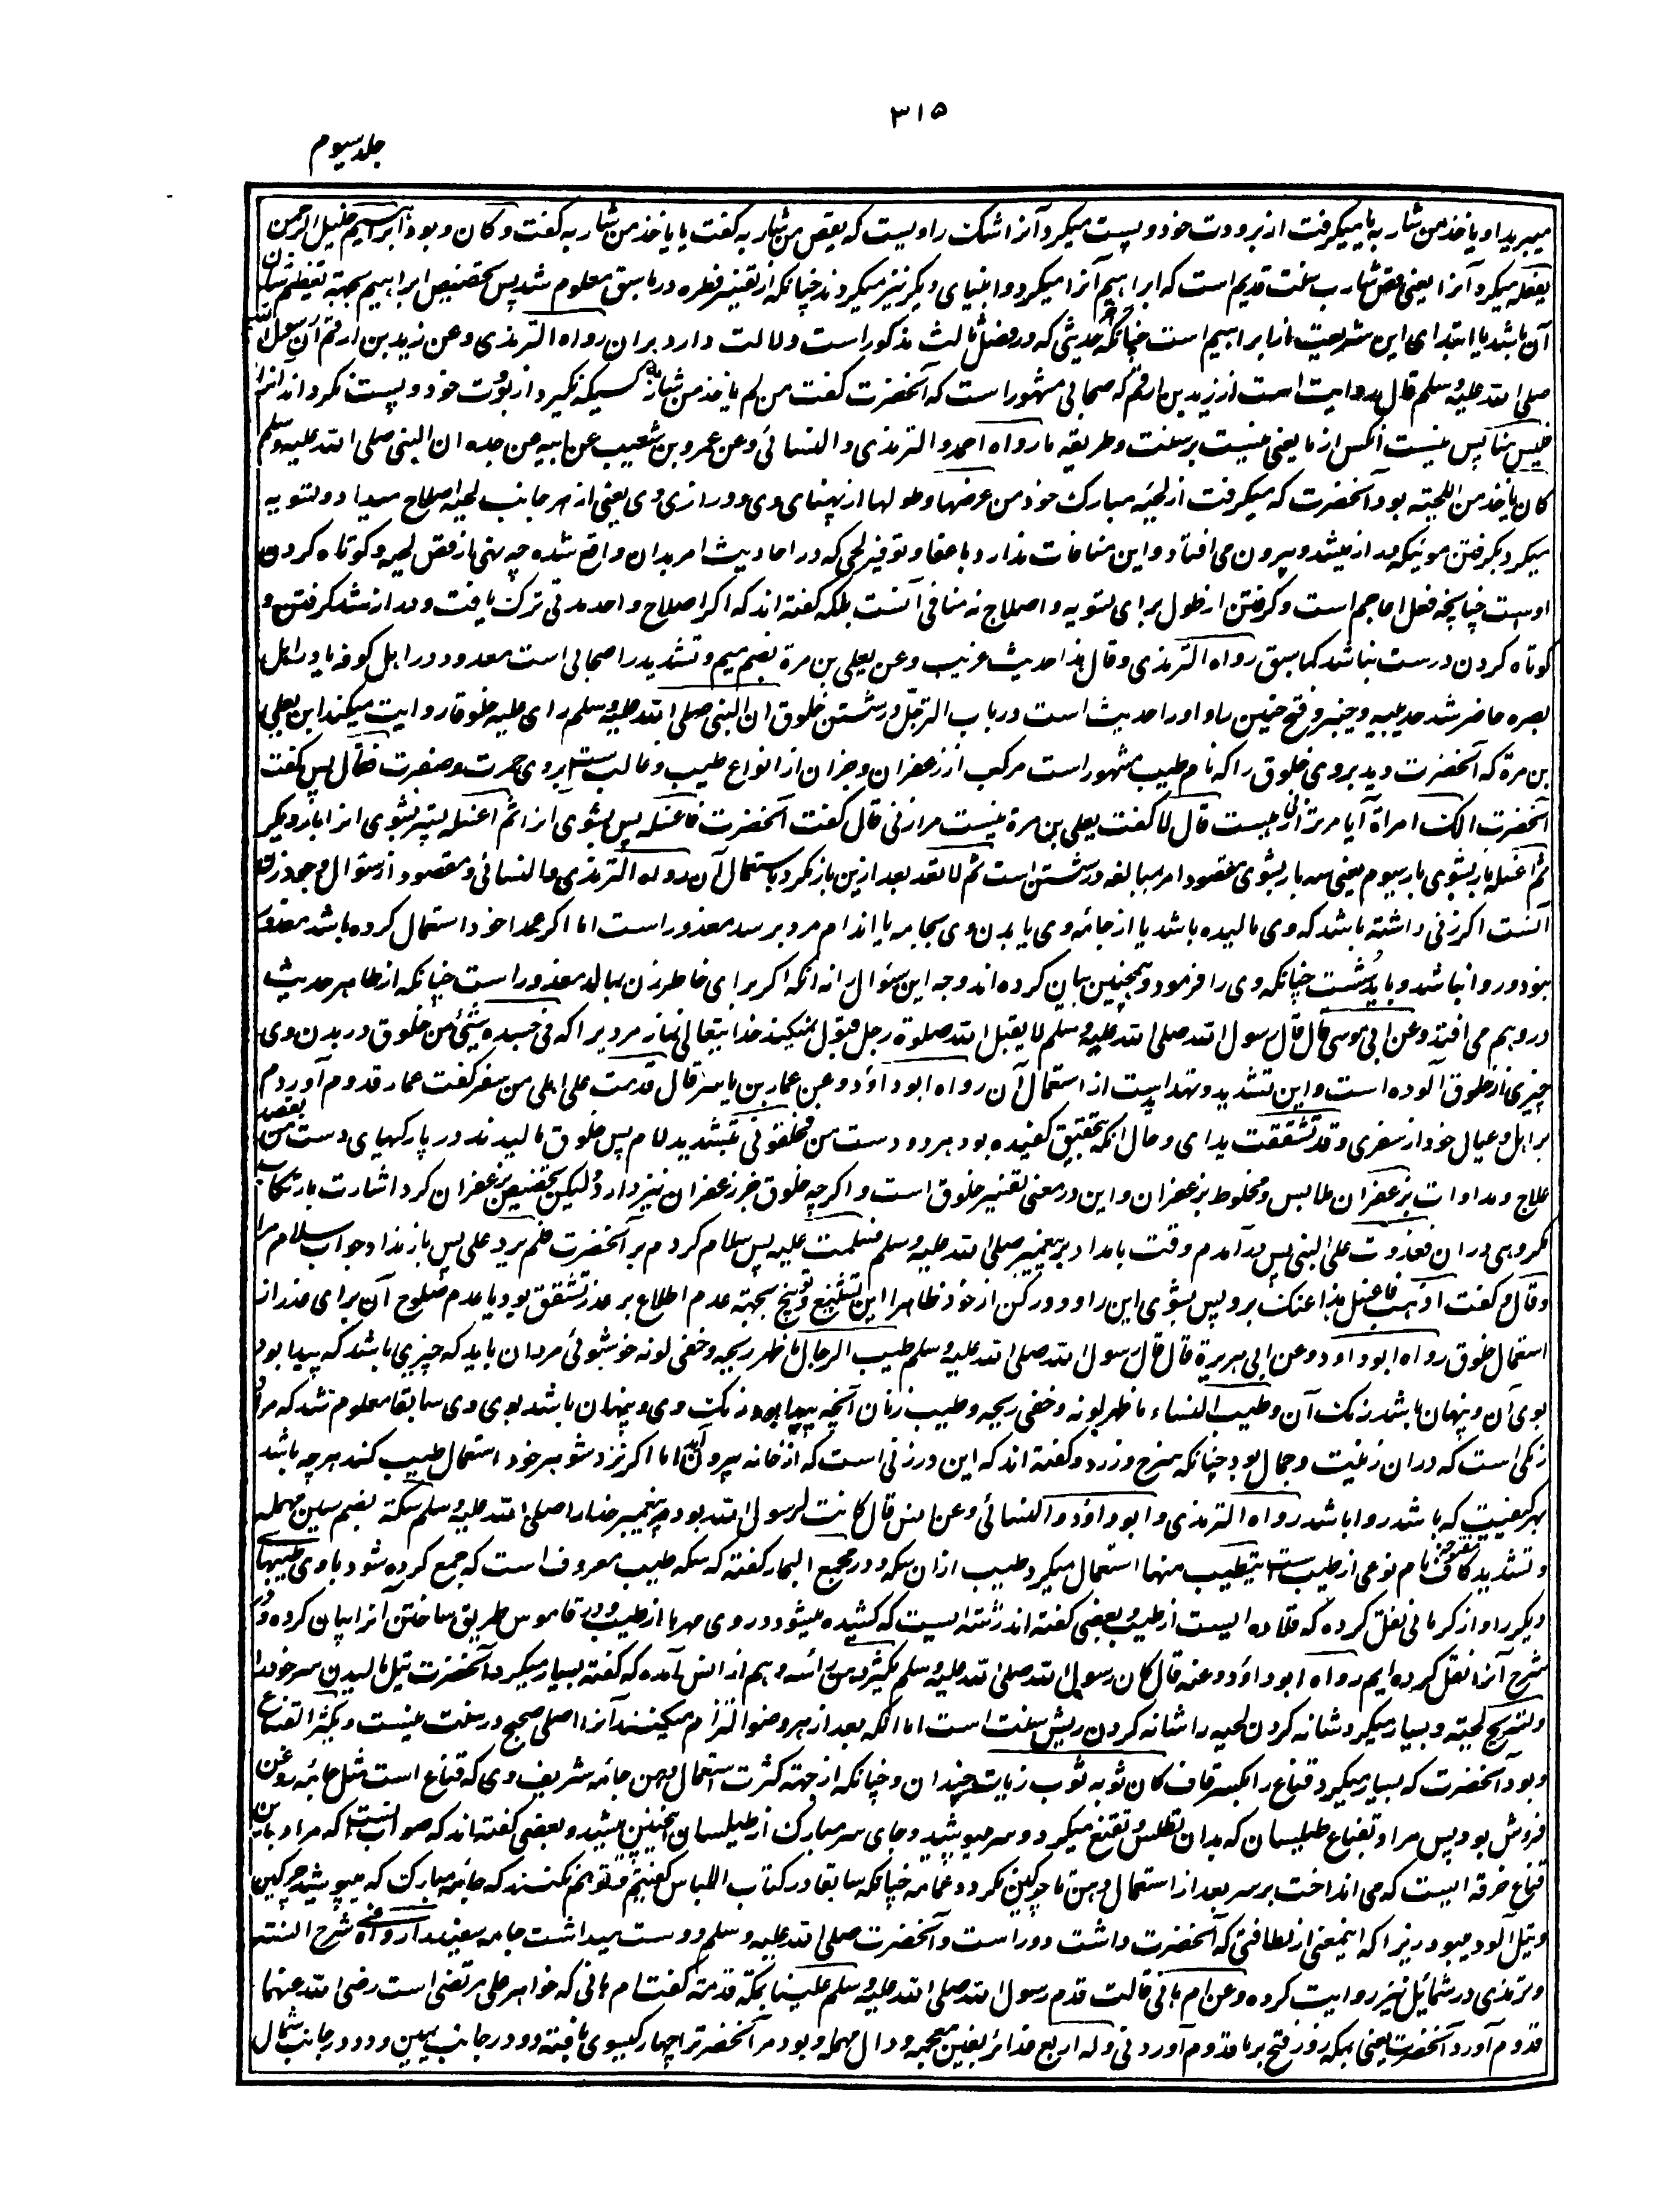 ۳۱۵
جلد سیوم
میبرید او یاخذ من شاربه یا میگرفت از بروت خود و پست میکرد آنرا شک راویست که یقص من شاربه گفت یا یاخذ من شاربه گفت و کان و بود ابراهیم خلیل الرحمن
یفعله میکرد آنرا یعنی قص شارب سنت قدیم است که ابراهیم آنرا میکرد و انبیای دیگر نیز میکردند چنانکه از تفسیر فطره در ما سبق معلوم شد پس تخصیص ابراهیم بجهة تعظیم شان
آن باشد یا ابتدای این شریعت از ابراهیم است چنانکه حدیثی که در فصل ثالث مذکور است دلالت دارد بر آن رواه الترمذی وعن زید بن ارقم ان رسول الله
صلی الله علیه وسلم قال روایت است از زید بن ارقم که صحابی مشهور است که آنحضرت گفت من لم یاخذ من شاربه کسیکه نگیرد از بروت خود و پست نگرداند آنرا
فلیس منا پس نیست آنکس از ما یعنی نیست بر سنت و طریقه ما رواه احمد والترمذی والنسائی وعن عمرو بن شعیب عن ابیه عن جده ان النبی صلی الله علیه وسلم
کان یاخذ من اللحیته بود آنحضرت که میگرفت از لحیه مبارک خود من عرضها وطولها از پهنای وی و درازی وی یعنی از هر جانب لحیه اصلاح میداد و تسویه
میکرد بگرفتن مویکه دراز میشد و بیرون می افتاد و این منافات ندارد با عفا و توفیر لحی که در احادیث امر بدان واقع شده چه نهی از قص لحیه و کوتاه کردن
اوست چنانچه فعل اعاجم است و گرفتن از طول برای تسویه و اصلاح نه منافی آنست بلکه گفته اند که اگر اصلاح واحد مدتی ترک یافت و دراز شد گرفتن و
کوتاه کردن درست نباشد کما سبق رواه الترمذی وقال هذا حدیث غریب وعن یعلی بن مرة بضم میم و تشدید را صحابی است معدود در اهل کوفه یا در اهل
بصره حاضر شد حدیبیه و خیبر و فتح حنین را و او را حدیث است در باب الترجل و شستن خلوق ان النبی صلی الله علیه وسلم رای علیه خلوقا روایت میکند این یعلی
بن مرة که آنحضرت دید بر وی خلوق را که نام طیب مشهور است مرکب از زعفران و جز آن از انواع طیب و غالبست بر وی حمرت و صفرت فقال پس گفت
آنحضرت الک امراة آیا مر ترا زنی هست قال لا گفت یعلی بن مرة نیست مرا زنی قال گفت آنحضرت فاغسله پس بشوی آنرا ثم اغسله پستر بشوی آنرا بار دیگر
ثم اغسله باز بشوی بار سیوم یعنی سه بار بشوی مقصود امر بمبالغه در شستن است ثم لا تعد بعد ازین باز نگرد باستعمال آن رواه الترمذی والنسائی و مقصود از سؤال وجود زن
آنست اگر زنی داشته باشد که وی مالیده باشد یا از جامه وی یا بدن وی بجامه یا اندام مرد برسد معذور است اما اگر عمدا خود استعمال کرده باشد معذور
نبود و روا نباشد و باید شست چنانکه وی را فرمود و همچنین بیان کرده اند وجه این سؤال را نه آنکه اگر برای خاطر زن بمالد معذور است چنانکه از ظاهر حدیث
در وهم می افتد وعن ابی موسی قال قال رسول الله صلی الله علیه وسلم لا یقبل الله صلوة رجل قبول نمیکند خدا تعالی نماز مردیرا که فی جسده شیئ من خلوق در بدن وی
چیزی از خلوق آلوده است و این تشدید و تهدیدست از استعمال آن رواه ابو داؤد وعن عمار بن یاسر قال قدمت علی اهلی من سفر گفت عمار قدوم آوردم
بر اهل و عیال خود از سفری وقد تشققت یدای و حال آنکه بتحقیق کفیده بود هر دو دست من فخلقونی بتشدید لام پس خلوق مالیدند در پارگیهای دست من بقصد
علاج و مداوات بزعفران ملابس و مخلوط بزعفران و این در معنی تفسیر خلوق است و اگرچه خلوق جز زعفران نیز دارد ولیکن تخصیص بزعفران کرد اشارت بارتکاب
مکروهی در آن فغدوت علی النبی پس درآمدم وقت بامداد بر پیغمبر صلی الله علیه وسلم فسلمت علیه پس سلام کردم بر آنحضرت فلم یرد علی پس باز نداد جواب سلام مرا
وقال و گفت اذهب فاغسل هذا عنک برو پس بشوی این را و دور کن از خود ظاهرا این تشنیع و توبیخ بجهة عدم اطلاع بر عذر تشقق بود یا عدم صلوح آن برای عذر از
استعمال خلوق رواه ابو داود وعن ابی هریرة قال قال رسول الله صلی الله علیه وسلم طیب الرجال ما ظهر ریحه وخفی لونه خوشبوئی مردان باید که چیزی باشد که پیدا بود
بوی آن و پنهان باشد رنگ آن وطیب النساء ما ظهر لونه وخفی ریحه و طیب زنان آنچه پیدا بود رنگ وی و پنهان باشد بوی وی سابقا معلوم شد که مراد
رنگی است که در آن زینت و جمال بود چنانکه سرخ و زرد و گفته اند که این در زنی است که از خانه بیرون آید اما اگر نزد شوهر خود استعمال طیب کند هرچه باشد
بهر کیفیت که باشد روا باشد رواه الترمذی وابو داؤد والنسائی وعن انس قال کانت لرسول الله بود مر پیغمبر خدا را صلی الله علیه وسلم سکة بضم سین مهمله
و تشدید کاف مفتوحه نام نوعی از طیبست یتطیب منها استعمال میکرد طیب از آن سکه و در مجمع البحار گفته که سکه طیب معروف است که جمع کرده شود با وی طیبهای
دیگر را و از کرمانی نقل کرده که قلاده ایست از طیب و بعضی گفته اند رشته ایست که کشیده میشود در وی مهرها از طیب و در قاموس طریق ساختن آنرا بیان کرده و در
شرح آنرا نقل کرده ایم رواه ابو داؤد وعنه قال کان رسول الله صلی الله علیه وسلم یکثر دهن رأسه و هم از انس آمده که گفته بسیار میکرد آنحضرت تیل مالیدن سر خود را
وتسریح لحیته و بسیار میکرد شانه کردن لحیه را شانه کردن ریش سنت است اما آنکه بعد از هر وضو التزام میکنند آنرا اصلی صحیح در سنت نیست ویکثر القناع
و بود آنحضرت که بسیار میکرد قناع را بکسر قاف کان ثوبه ثوب زیات چندان و چنانکه از جهته کثرت استعمال دهن جامه شریف وی که قناع است مثل جامه روغن
فروش بود پس مراد بقناع طیلسان که بدان تطلس و تقنع میکرد و سر میپوشید و جای سر مبارک از طیلسان همچنین میشد و بعضی گفته اند که صواب آنست که مراد باین
قناع خرقه ایست که می انداخت بر سر بعد از استعمال دهن تا چرکین نگردد عمامه چنانکه سابقا در کتاب اللباس گفتیم و توهم نکنند که جامه مبارک که میپوشید چرکین
و تیل آلود میبود زیرا که اینمعنی از نظافتی که آنحضرت داشت دور است و آنحضرت صلی الله علیه وسلم دوست میداشت جامه سفید را رواه فی شرح السنته
و ترمذی در شمائل نیز روایت کرده وعن ام هانی قالت قدم رسول الله صلی الله علیه وسلم علینا بمکة قدمة گفت ام هانی که خواهر علی مرتضی است رضی الله عنهما
قدوم آورد آنحضرت یعنی بمکه روز فتح بر ما قدوم آوردنی وله اربع غدائر بغین معجمه و دال مهمله و بود مر آنحضرت را چهار گیسوی بافته دو در جانب یمین و دو در جانب شمال